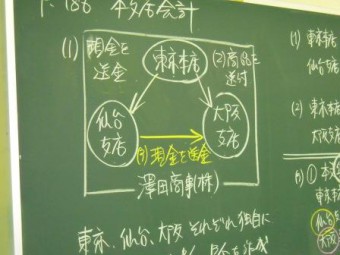 P.186 本支店会計
(1) 現金を
送金
東京本店
(2)商品を
送付
仙台
支店
大阪
支店
(3)現金を送金
澤田商事(株)
東京、仙台、大阪 それぞれ独自に
(1) 東京本店
仙台支店
(2) 東京本店
大阪支店
東京本
仙台
大阪